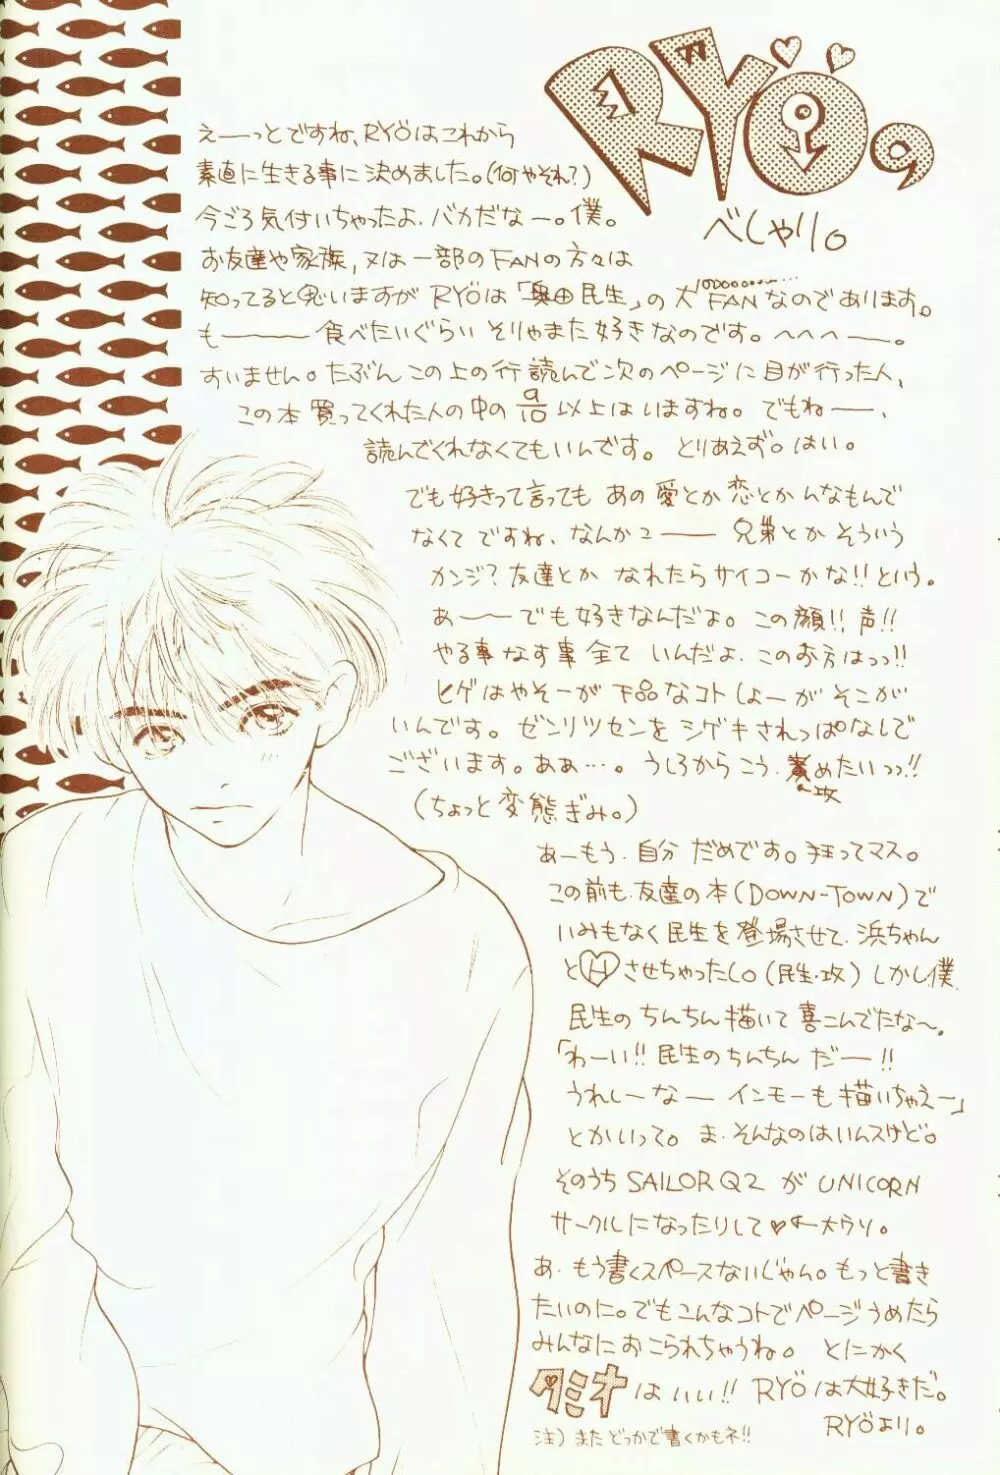 RYÖの
べしゃり。
えーっとですね、RYÖはこれから
素直に生きる事に決めました。(何やそれ?)
今ごろ気付いちゃったよ、バカだなー。僕。
お友達や家族,又は一部のFANの方々は
知ってると思いますが RYÖは「奥田民生」の大FANなのであります。
も――― 食べたいぐらい そりゃまた好きなのです。へへへー。
すいません。たぶん この上の行 読んで次のページに目が行った人、
この本 買ってくれた人の中の 9/10 以上はいますね。でもねー、
読んでくれなくてもいんです。とりあえず。はい。
でも好きって言っても あの 愛とか 恋とか んなもんで
なくて ですね、なんかこー 兄弟とか そういう
カンジ?友達とか なれたらサイコーかな!!という。
あーーでも好きなんだよ。この顔!!声!!
やる事 なす事 全て いんだよ、このお方はっっ!!
ヒゲはやそーが 下品なコトしよーが そこが
いんです。ゼンリツセンを シゲキされっぱなしで
ございます。ああ…。うしろから こう、責めたいっっ!!
攻
(ちょっと変態ぎみ。)
あーもう、自分 だめです。狂ってマス。
この前も、友達の本(DOWN-TOWN)で
いみもなく民生を登場させて、浜ちゃん
とHさせちゃったし。(民生・攻) しかし、僕、
民生の ちんちん 描いて 喜こんでたな〜。
「わーい!!民生のちんちん だー!!
うれしーなー インモーも 描いちゃえー」
とかいって。ま、そんなのはいんスけど。
そのうち SAILOR Q2 が UNICORN
サークルになったりして♥←大ウソ。
あ、もう書くスペースないじゃん。もっと書き
たいのに。でもこんなコトでページうめたら
みんなに おこられちゃうね。とにかく
タミオはいい!! RYÖは大好きだ。
RYÖより。
注) また どっかで書くかもネ!!